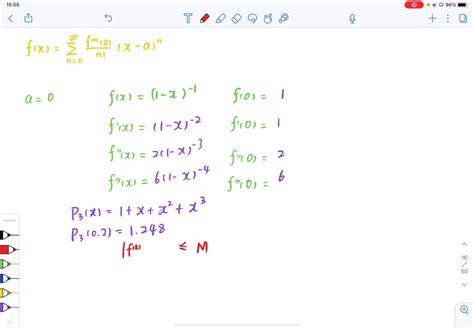 15:05
96%
f(x) = ∞ Σ n=0 f⁽ⁿ⁾(a)/n! (x-a)ⁿ
a = 0
f(x) = (1-x)⁻¹ f(0) = 1
f'(x) = (1-x)⁻² f'(0) = 1
f''(x) = 2(1-x)⁻³ f''(0) = 2
f'''(x) = 6(1-x)⁻⁴ f'''(0) = 6
P₃(x) = 1+x+x²+x³
P₃(0.2) = 1.248
|f⁽⁴⁾ ≤ M
16
/
50